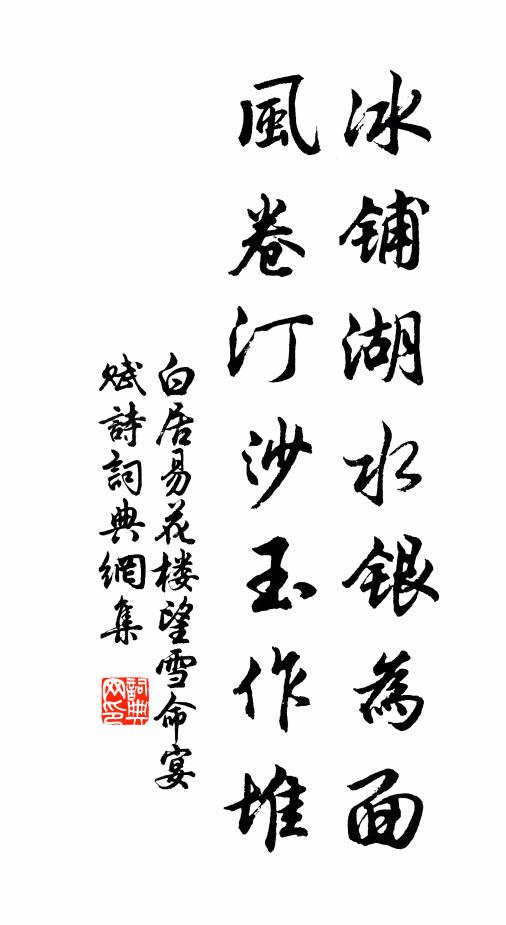 冰鋪湖水銀為面
風卷汀沙玉作堆
白居易花楼望雪命宴
赋詩詞典網集
詞典
网印